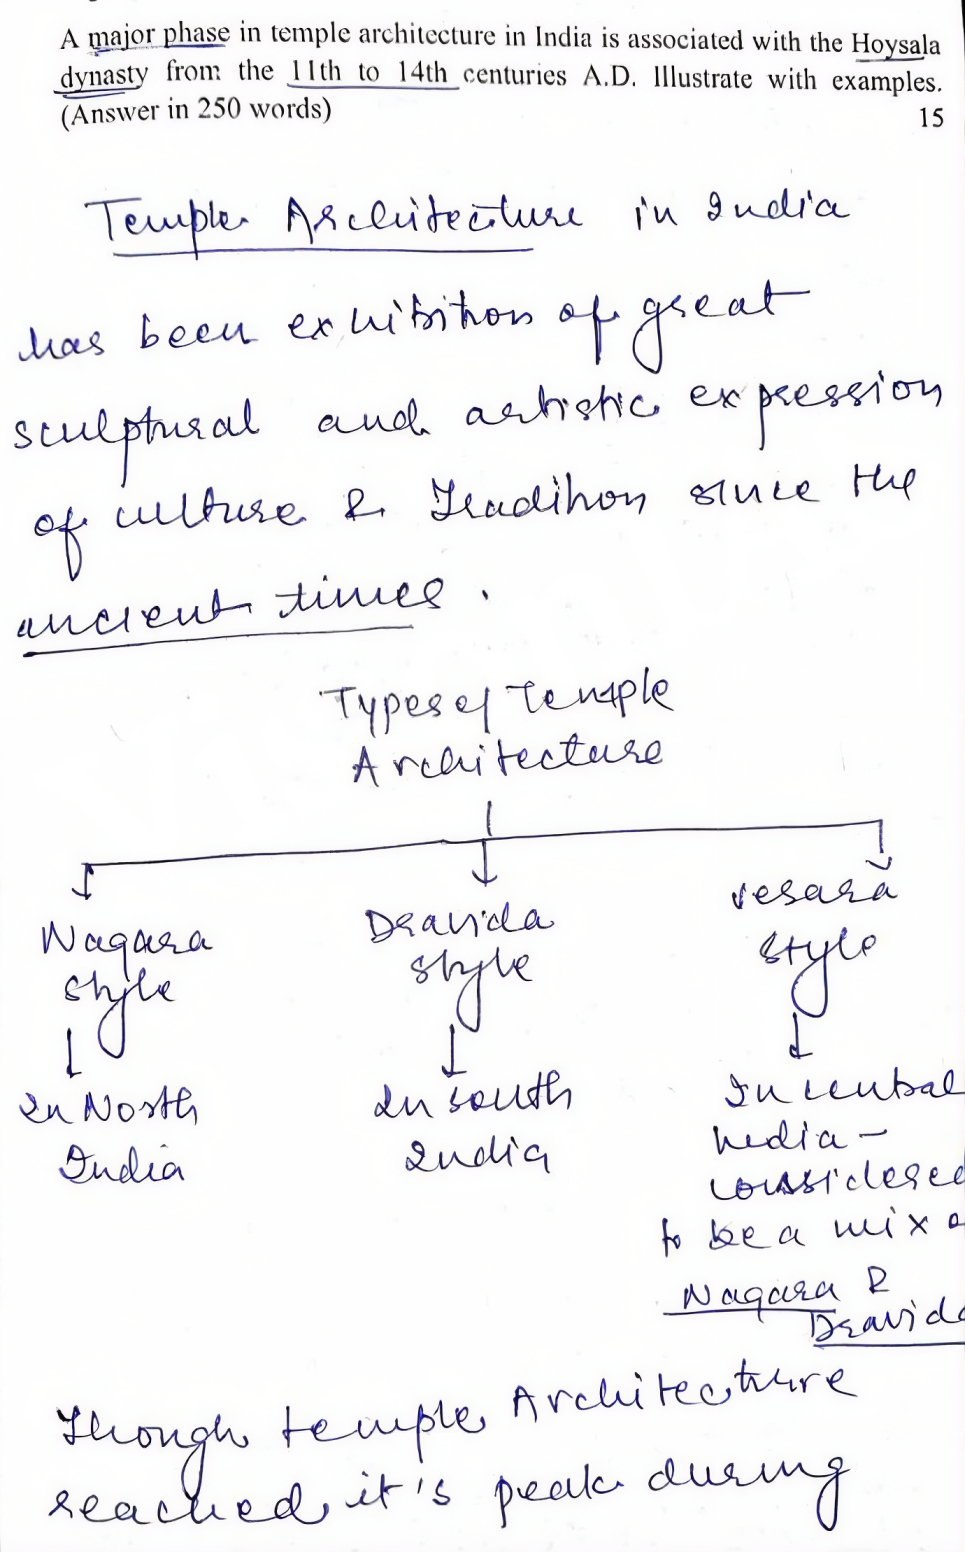 A major phase in temple architecture in India is associated with the Hoysala
dynasty from the 11th to 14th centuries A.D. Illustrate with examples.
(Answer in 250 words) 15
Temple Architecture in India
has been exhibition of great
sculptural and artistic expression
of culture & Tradition since the
ancient times.
Types of Temple
Architecture
Nagara
style
In North
India
Dravida
style
In south
India
vesara
style
In central
India -
considered
to be a mix o
Nagara &
Dravida
Though temple Architecture
reached it's peak during